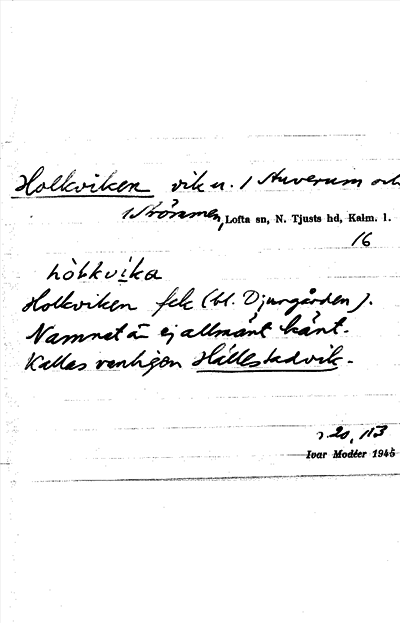 Holkviken vik u. 1 Auverum och
1 Strömmen, Lofta sn, N. Tjusts hd, Kalm. l.
16
hòlkvika
Holkviken fck (bl. Djurgården).
Namnet är ej allmänt känt.
Kallas vanligen Hällestadvik.
20, 113
Ivar Modéer 1945